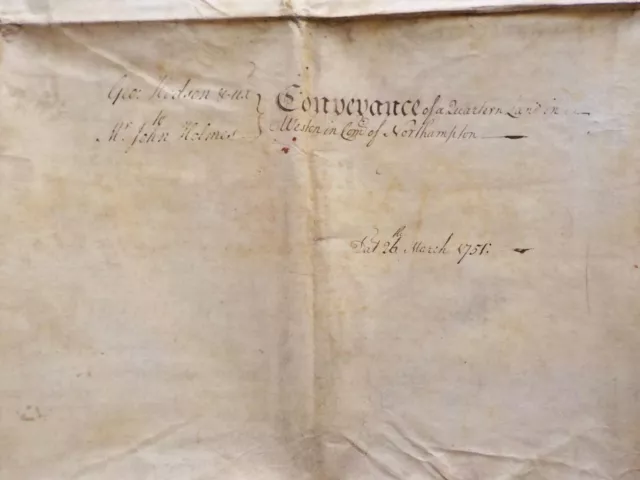 Geo: Hodson & ux
to
Mr. John Holmes
Conveyance of a Quartern Land in
Weston in Com of Northampton
Dat 26th March 1751: